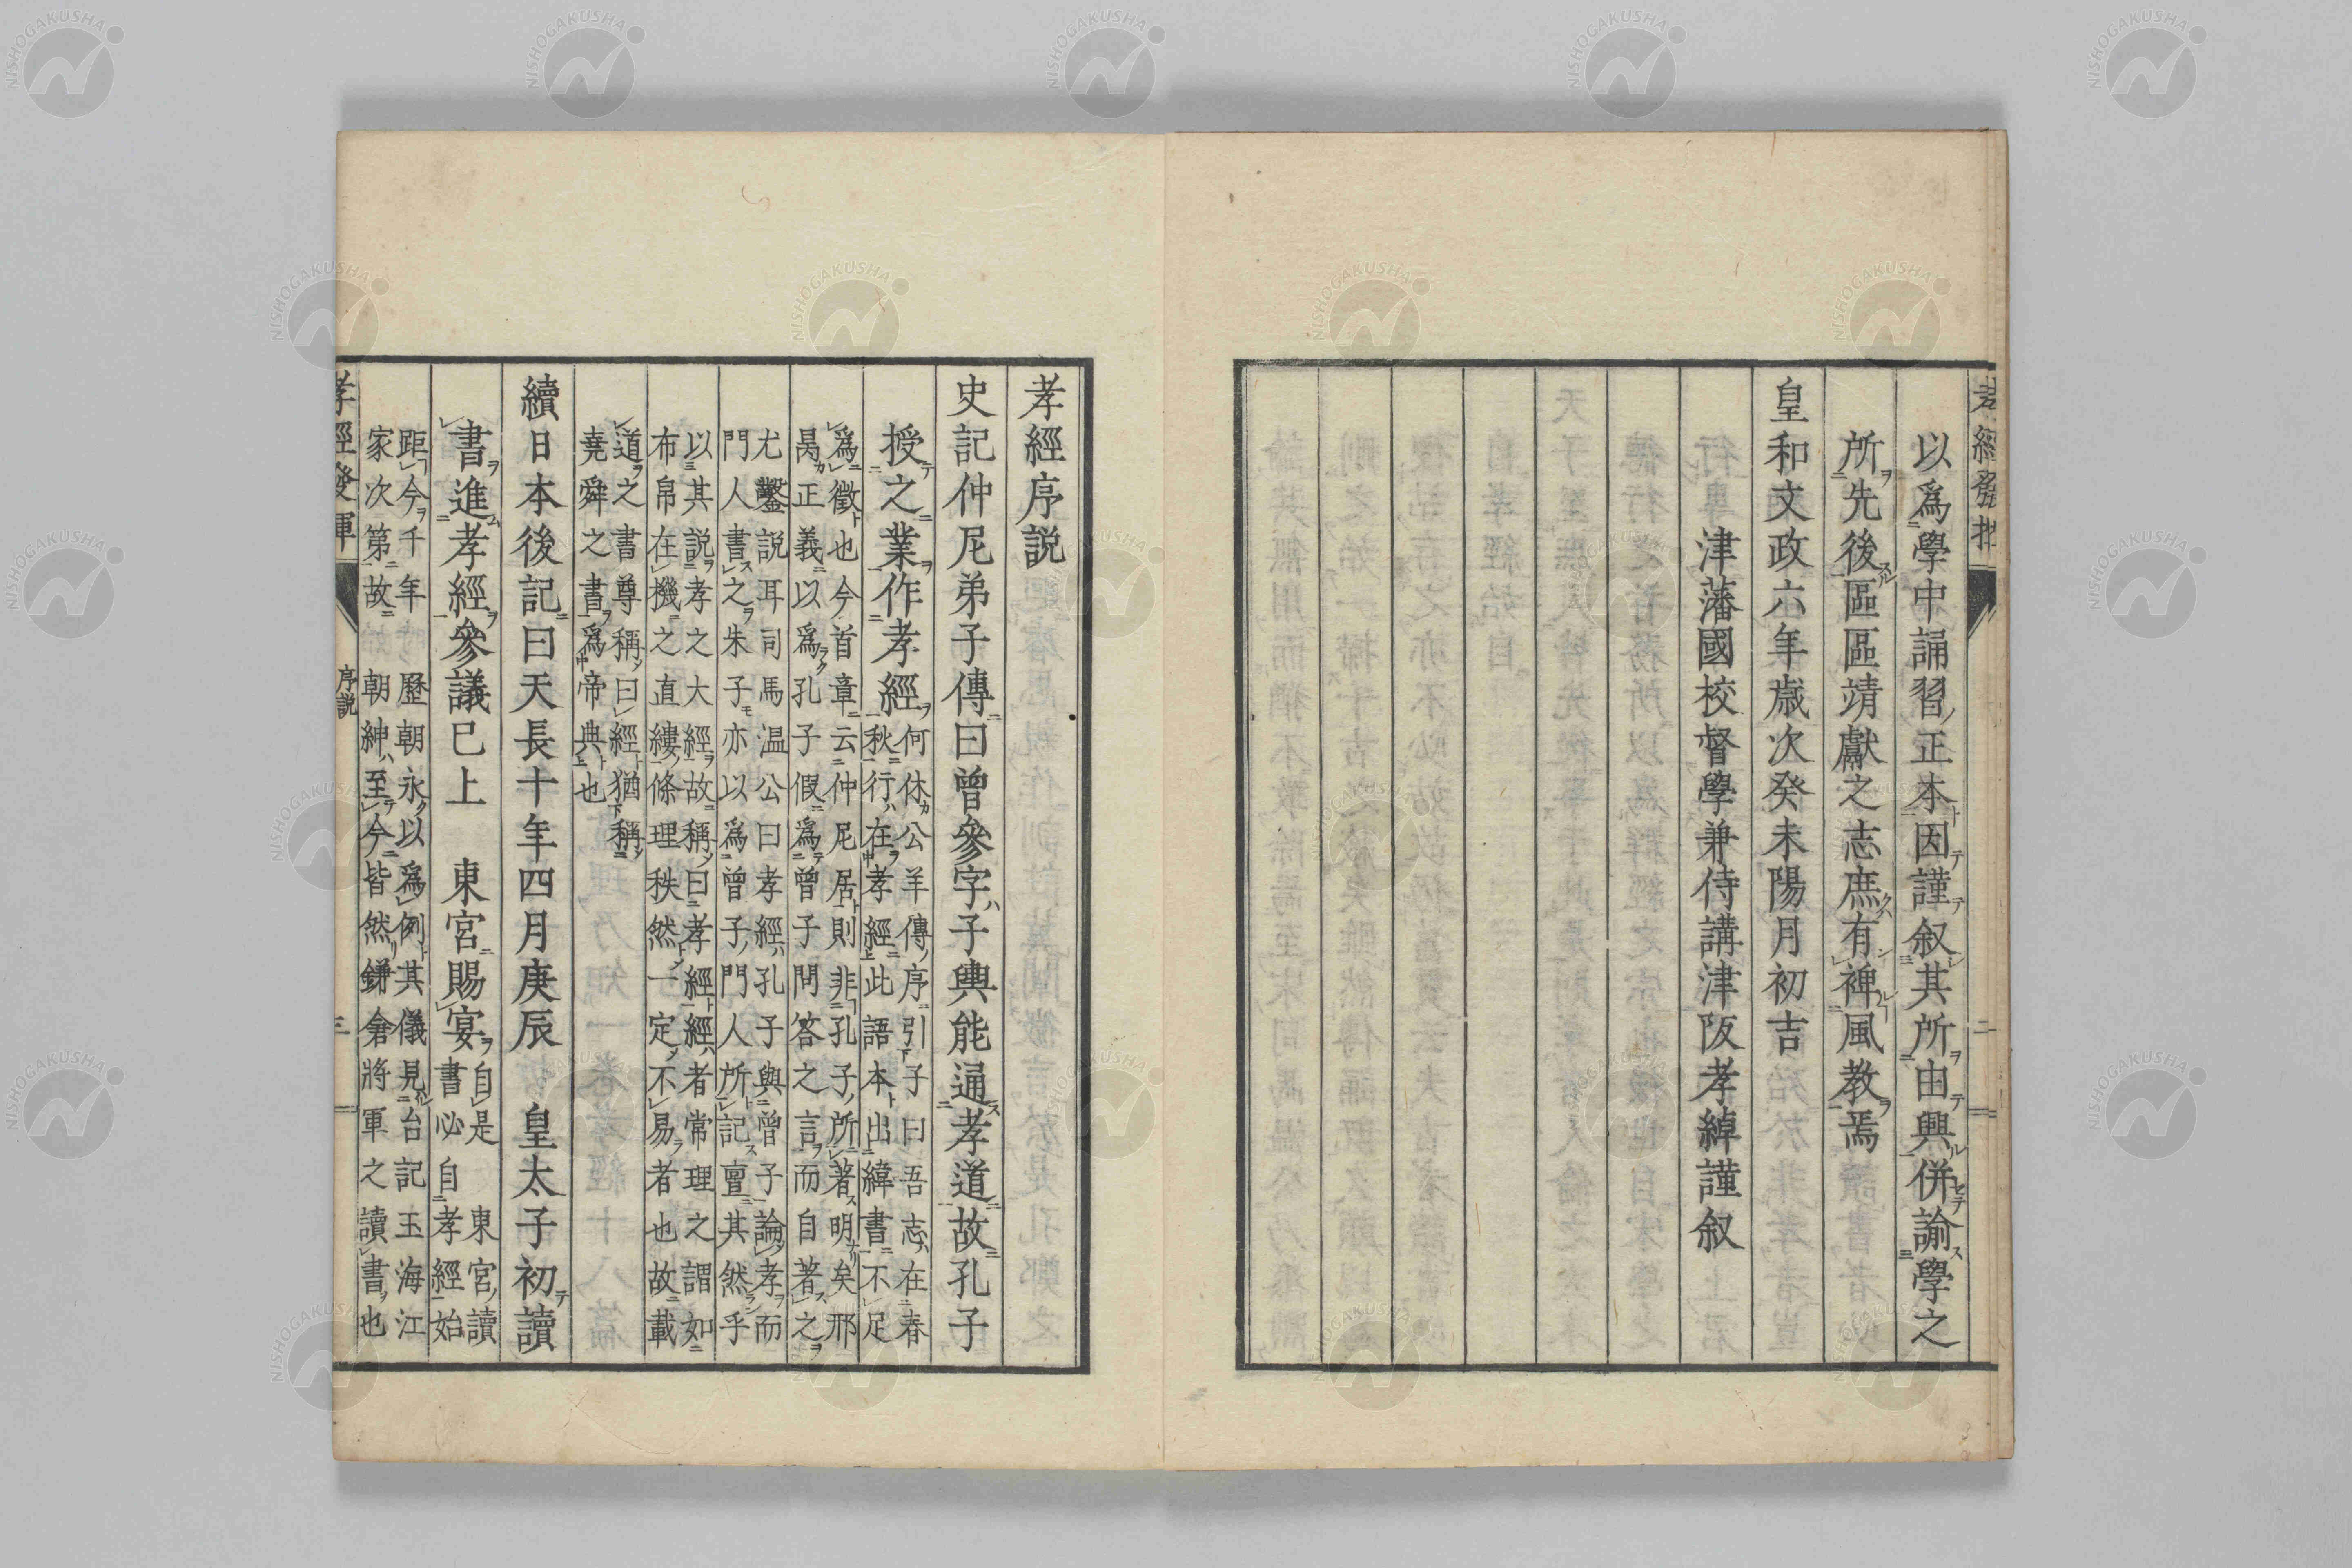 以爲學中誦習正本因謹叙其所由興併諭學之
所先後區區靖獻之志庶有裨風教焉
皇和文政六年歳次癸未陽月初吉
津藩國校督學兼侍講津阪孝綽謹叙
孝經序説
史記仲尼弟子傳曰曾參字子輿能通孝道故孔子
授之業作孝經
何休公羊傳序引子曰吾志在春
秋行在孝經此語本出緯書不足
爲徵也今首章云仲尼居則非孔子所著明矣邢
昺正義以爲孔子假爲曾子問答之言而自著之
尤鑿説耳司馬温公曰孝經孔子與曾子論孝而
門人書之朱子亦以爲曾子門人所記亶其然乎
以其説孝之大經故稱曰孝經經者常理之謂如
布帛在機之直縷條理秩然一定不易者也故載
道之書尊稱曰經猶稱
堯舜之書爲帝典也
續日本後記曰天長十年四月庚辰　皇太子初讀
書進孝經參議已上　東宮賜宴
自是　東宮讀
書必自孝經始
距今千年歷朝永以爲例其儀見台記玉海江
家次第故朝紳至今皆然鎌倉將軍之讀書也
孝經發揮
序説
三
二
NISHOGAKUSHA